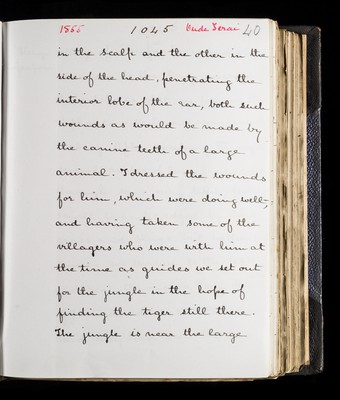 1866 1045 Oude Terai 40
in the scalp and the other in the
side of the head, penetrating the
interior lobe of the ear, both such
wounds as would be made by
the canine teeth of a large
animal. I dressed the wounds
for him, which were doing well,
and having taken some of the
villagers who were with him at
the time as guides we set out
for the jungle in the hope of
finding the tiger still there.
The jungle is near the large